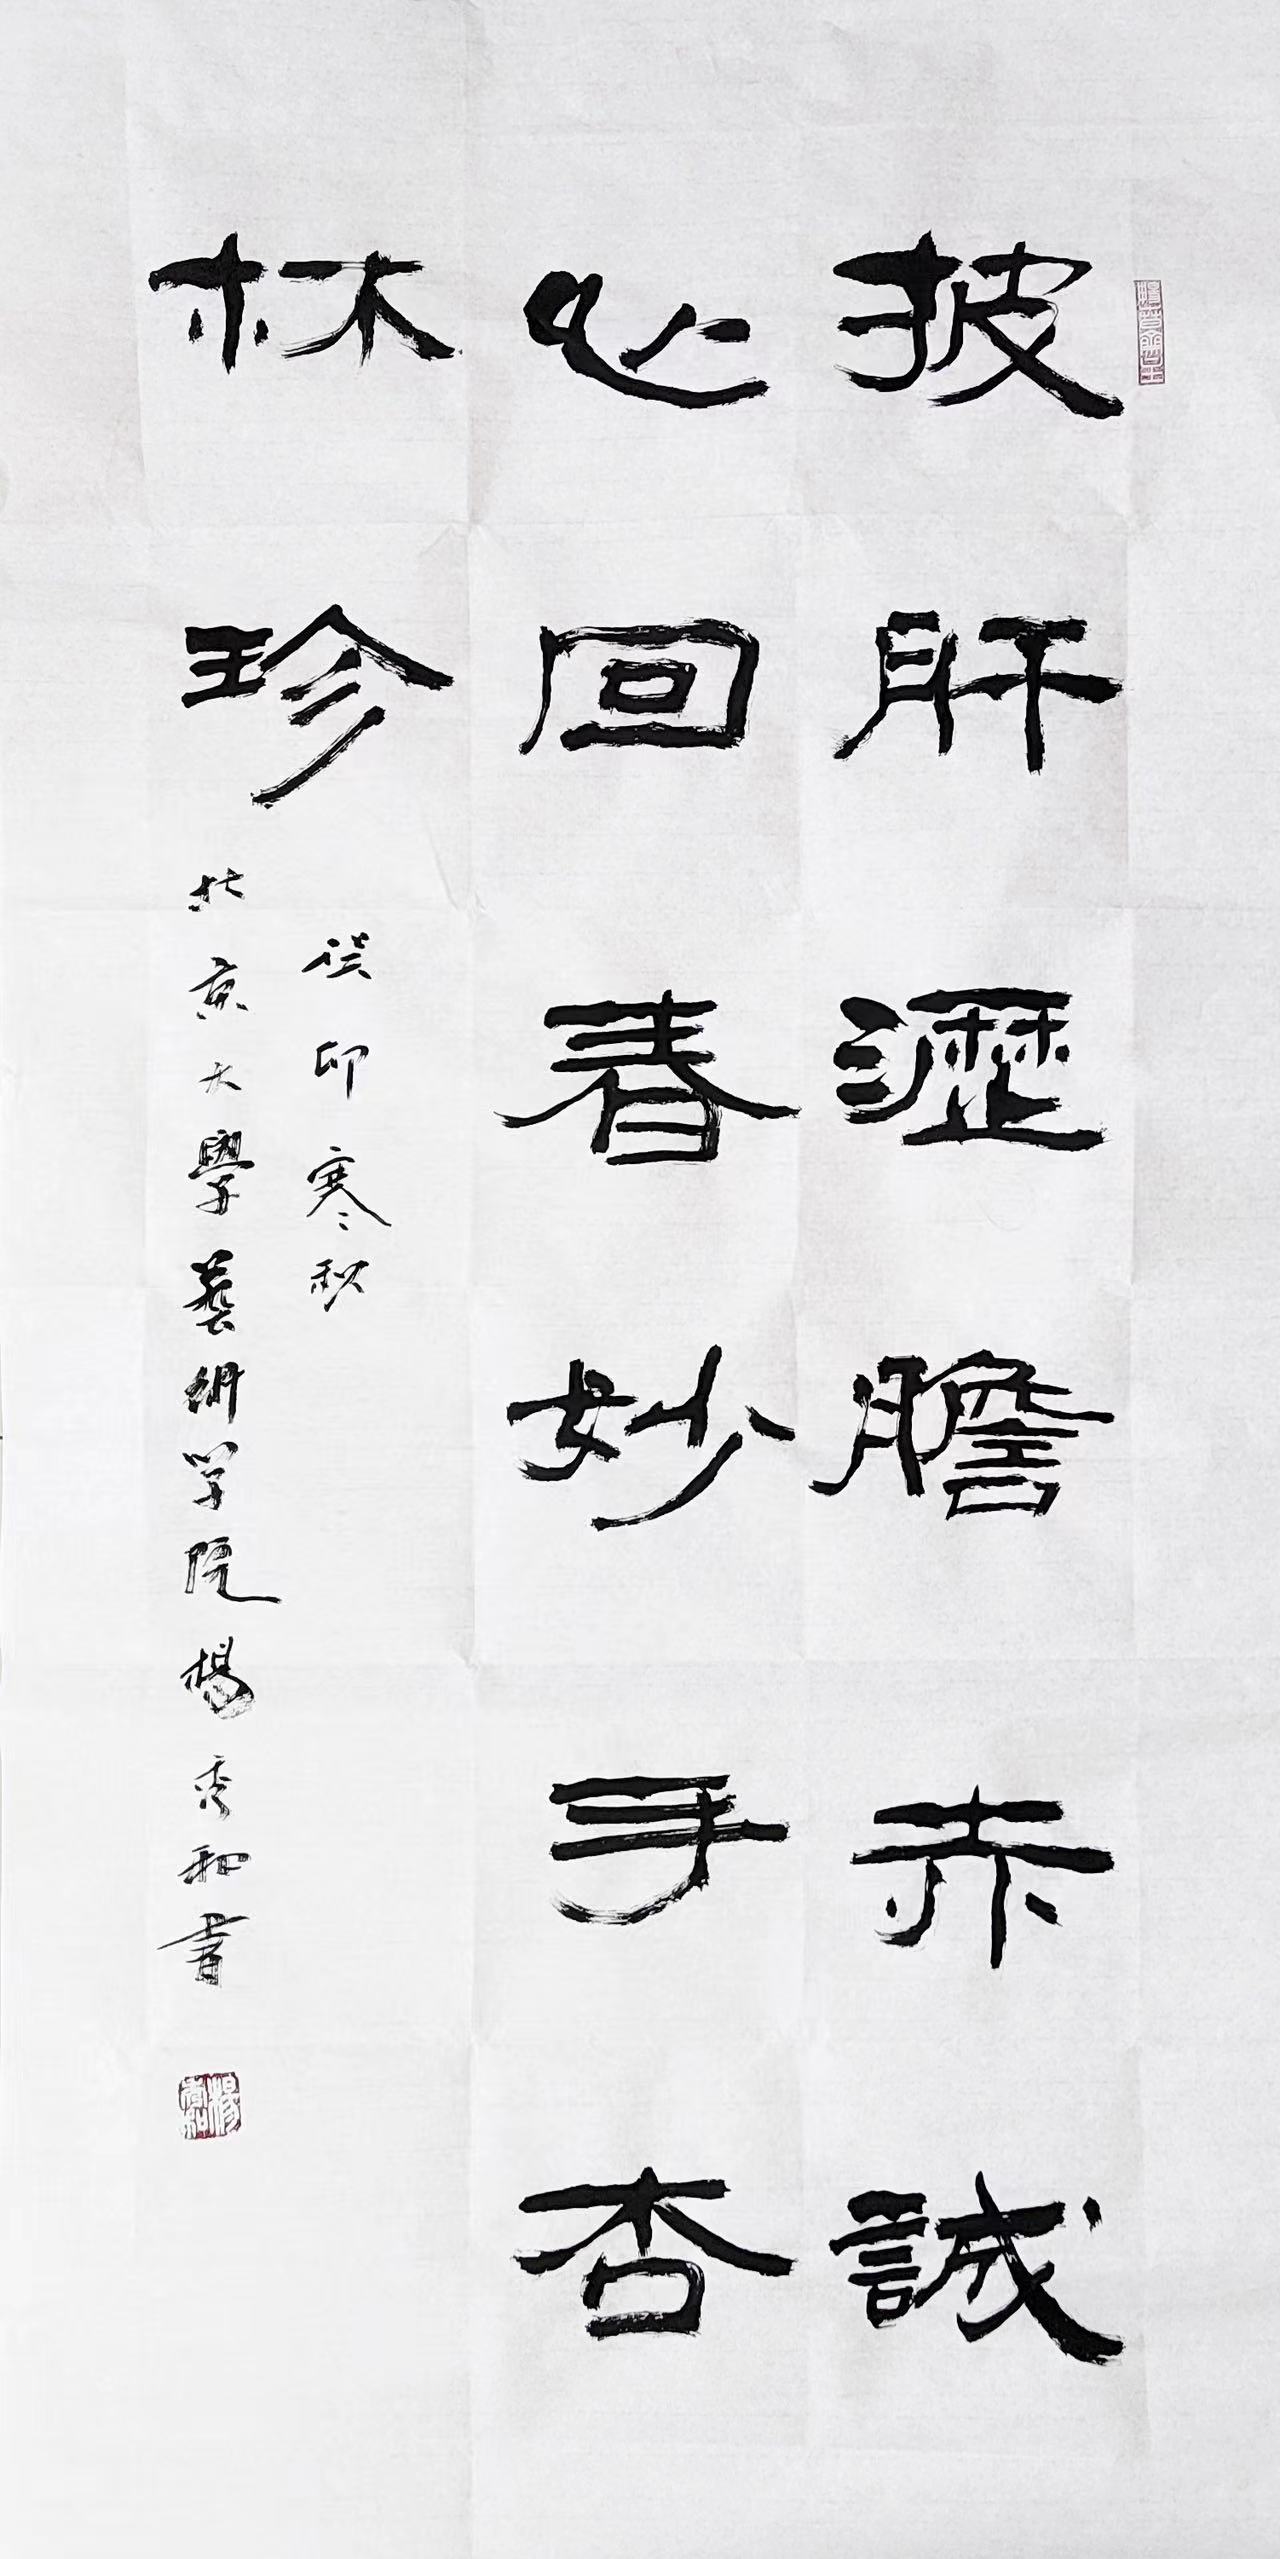 披肝瀝膽赤誠
心回春妙手杏
林珍
癸卯寒秋
北京大學藝術学院楊秀和書
楊秀和